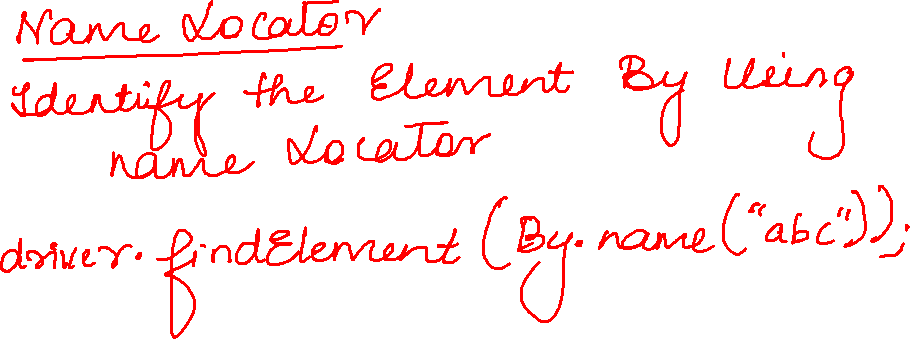 Name Locator
Identify the Element By Using
name Locator
driver.findElement(By.name("abc"));